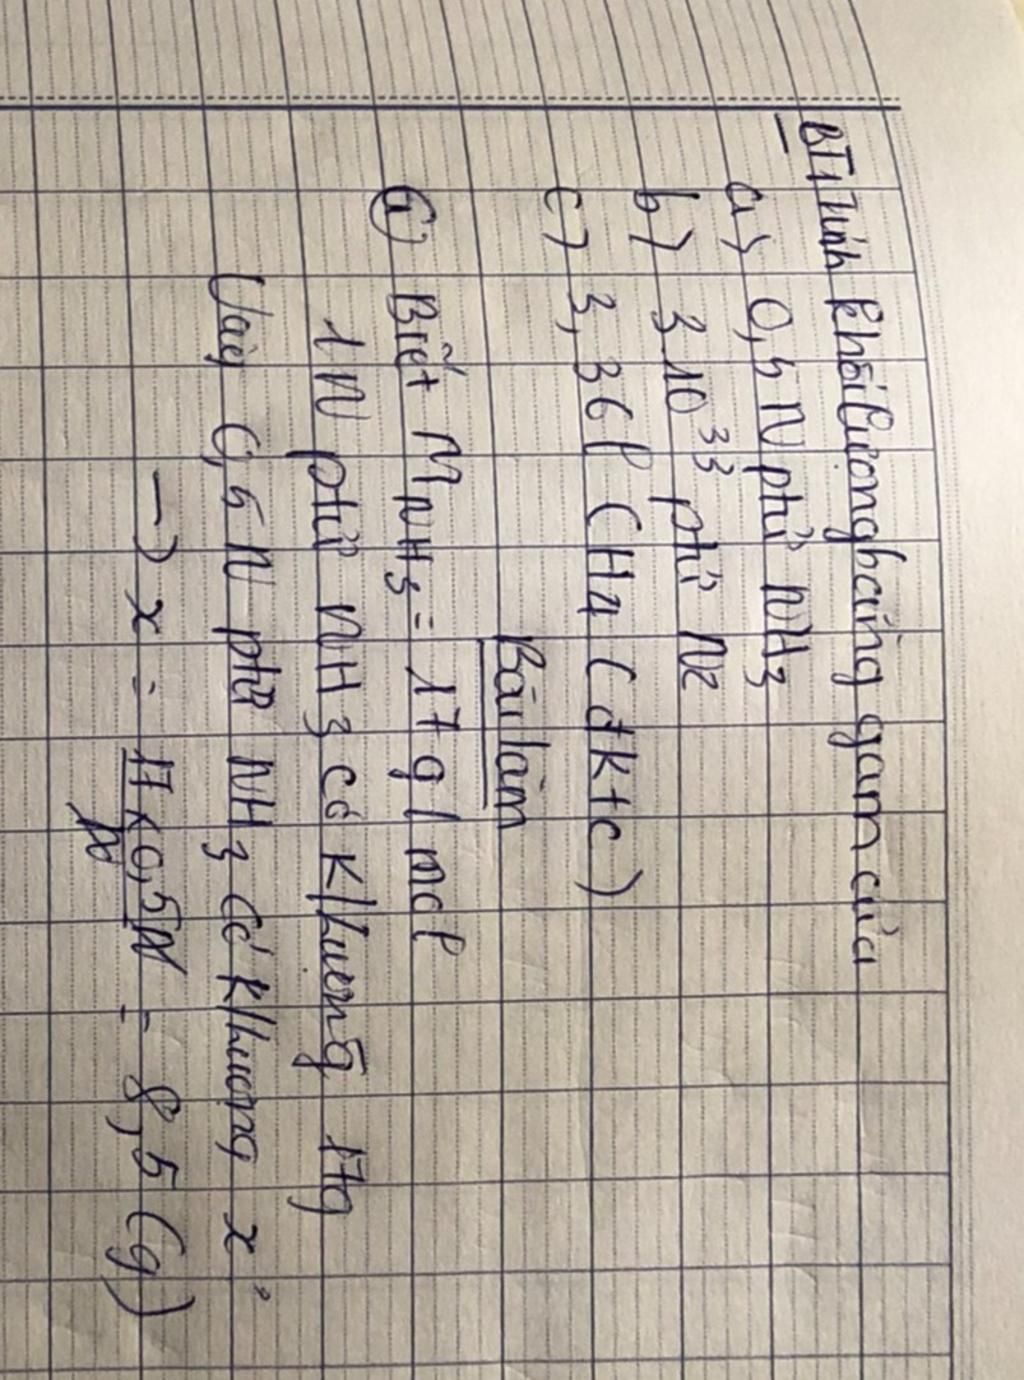 BT1 Tính khối lượng bằng gam của
a) 0,5 N ptử NH3
b) 3.10³³ ptử N2
c) 3,36l CH4 (đktc)
Bài làm
a) Biết MNH3 = 17g/mol
1N ptử NH3 có k/lượng 17g
Vậy 0,5 N ptử NH3 có k/lượng x
→ x = 17x0,5N / N = 8,5 (g)